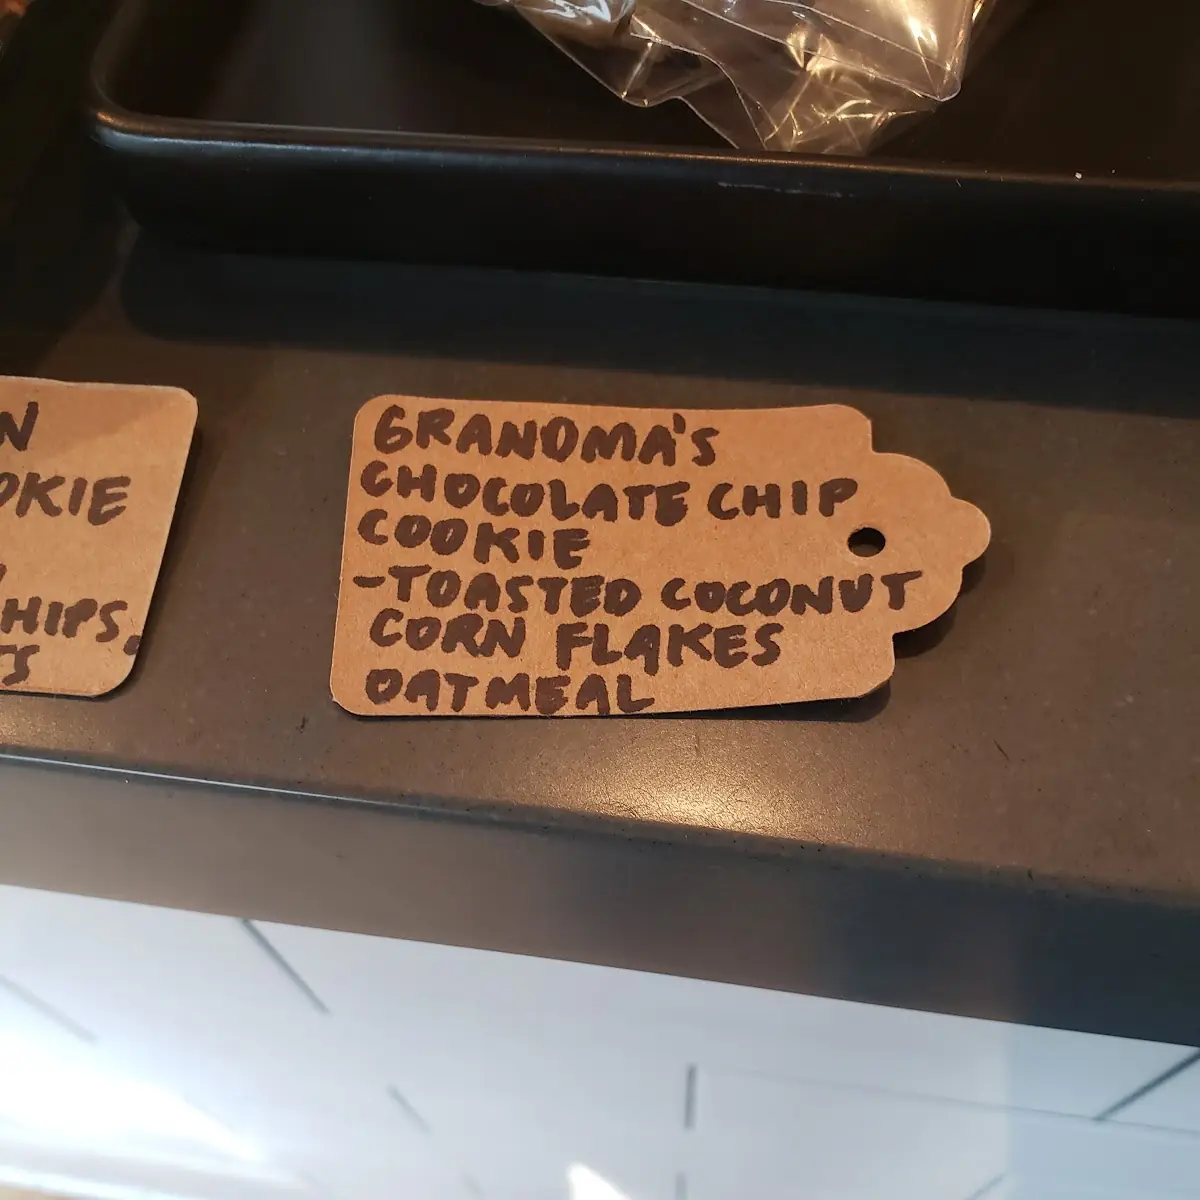 N
OKIE
HIPS,
TS
GRANDMA'S
CHOCOLATE CHIP
COOKIE
-TOASTED COCONUT
CORN FLAKES
OATMEAL